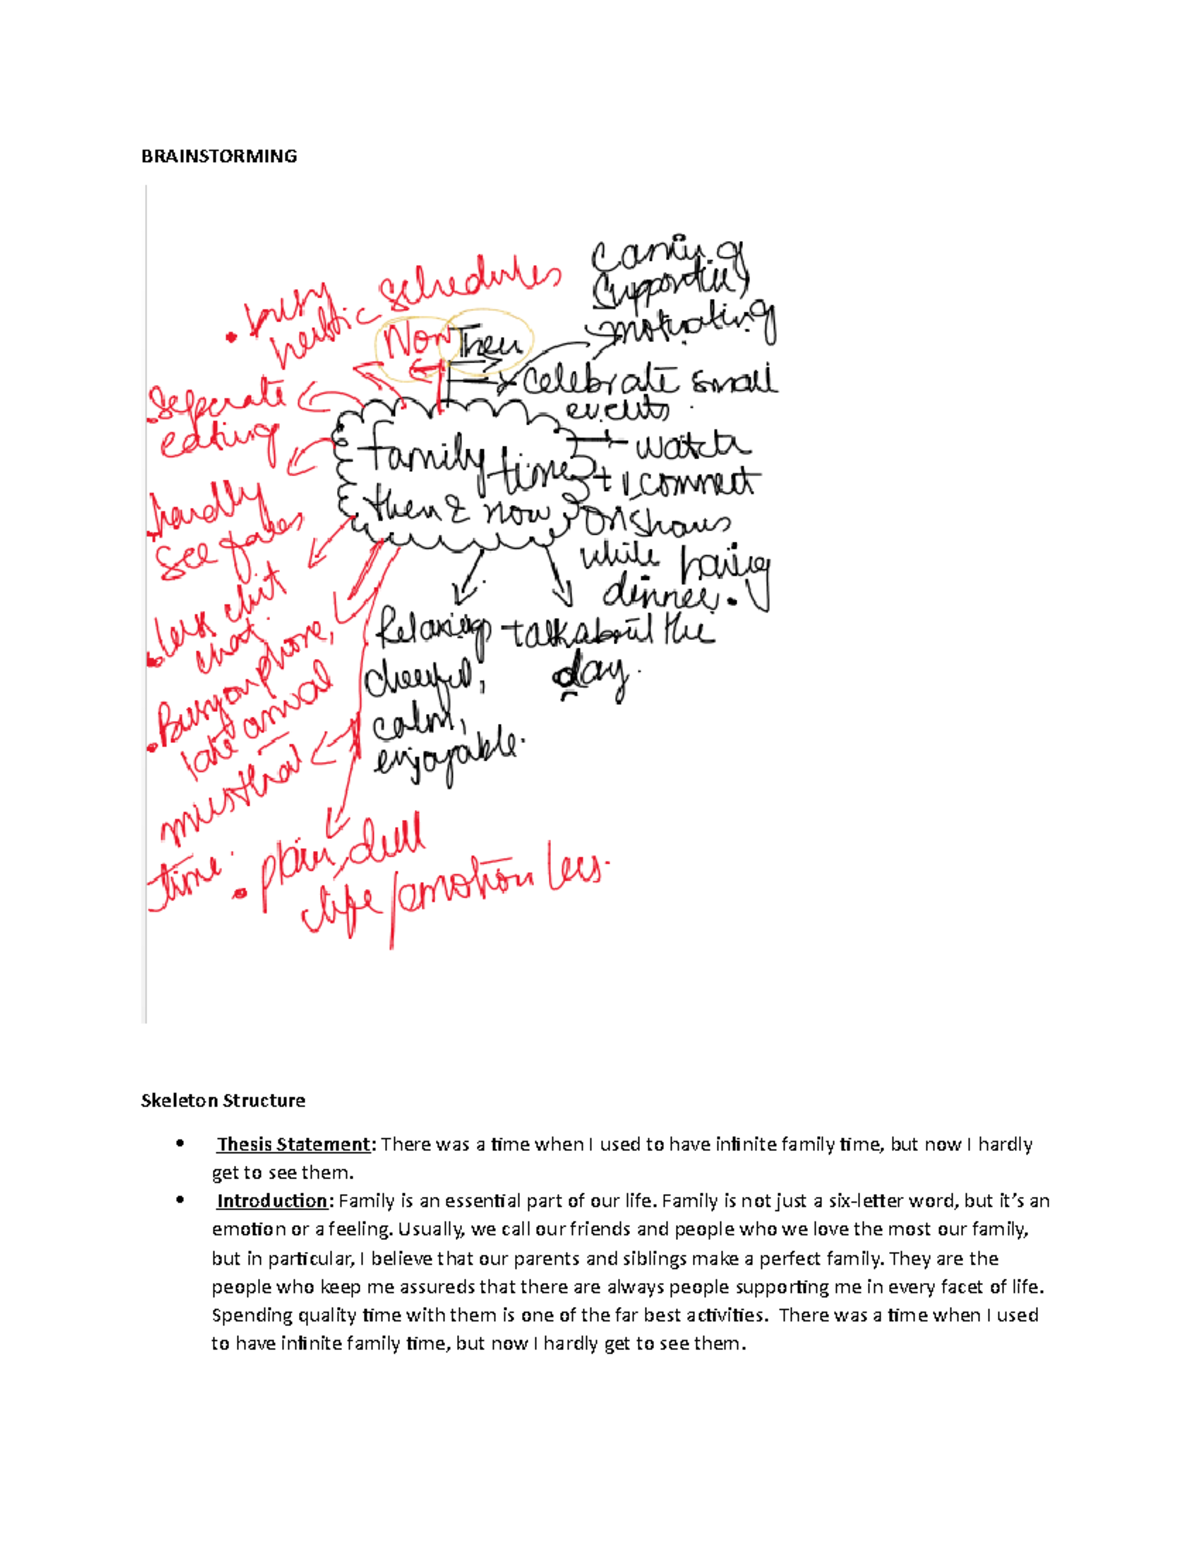 BRAINSTORMING
caring
supportive,
motivating
• busy
hectic schedules
Now Then
celebrate small
events.
Seperate
eating
family time
then & now
watch
+ connect
on shows
while having
dinner.
hardly
see faces
less chit
chat.
Busy on phone,
late arrival
must hai
time.
Relaxing
cheerful,
calm,
enjoyable.
- talk about the
day.
• plain, dull
life/emotion less.
Skeleton Structure
• Thesis Statement: There was a time when I used to have infinite family time, but now I hardly
get to see them.
• Introduction: Family is an essential part of our life. Family is not just a six-letter word, but it’s an
emotion or a feeling. Usually, we call our friends and people who we love the most our family,
but in particular, I believe that our parents and siblings make a perfect family. They are the
people who keep me assureds that there are always people supporting me in every facet of life.
Spending quality time with them is one of the far best activities.  There was a time when I used
to have infinite family time, but now I hardly get to see them.